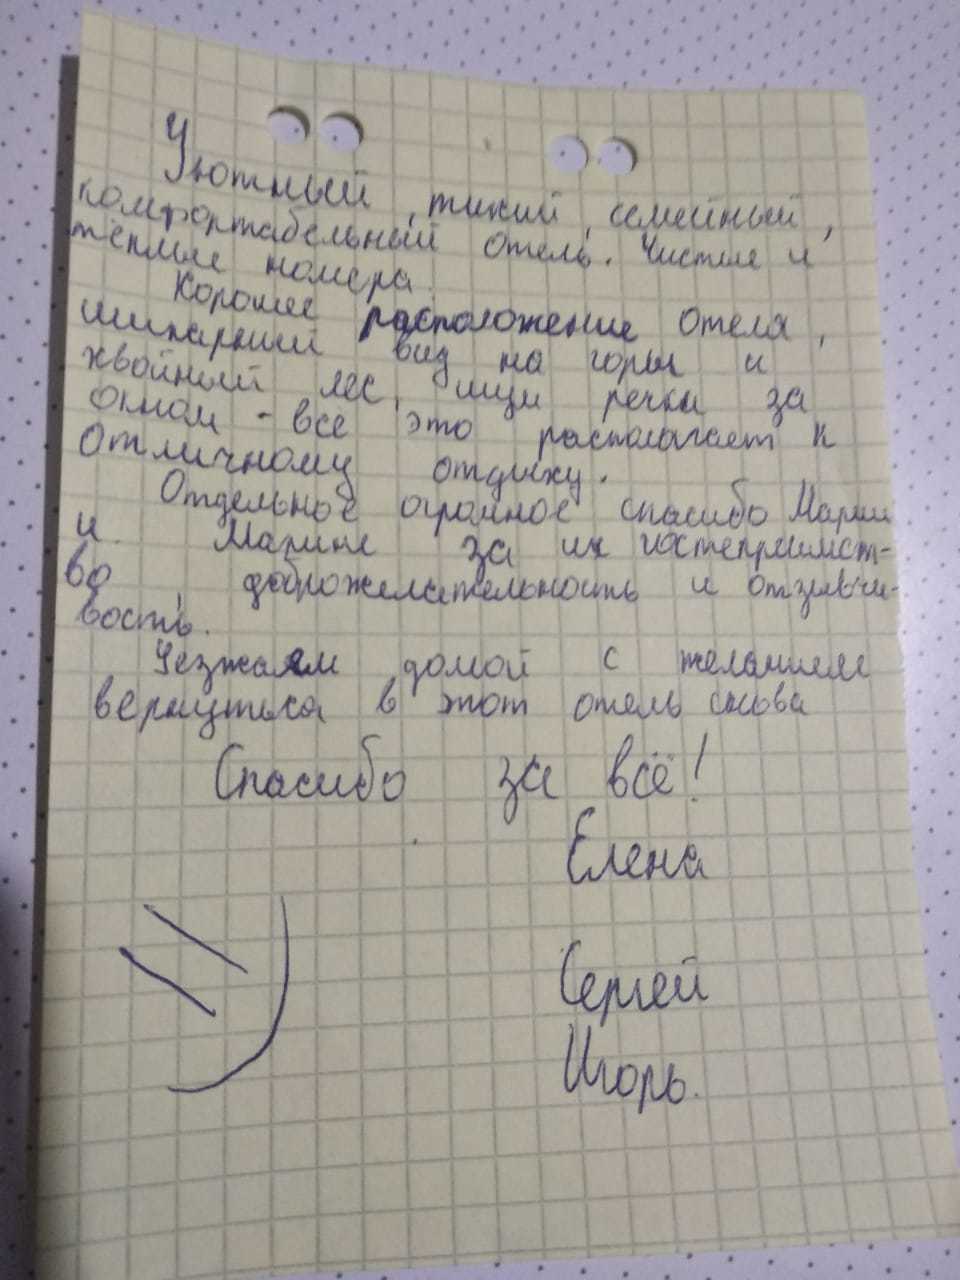 Уютный, тихий, семейный,
комфортабельный отель. Чистые и
теплые номера.
Хорошее расположение отеля,
шикарный вид на горы и
хвойный лес, шум речки за
окном - все это располагает к
отличному отдыху.
Отдельное огромное спасибо Марии
и Марине за их гостеприимст-
во, доброжелательность и отзывчи-
вость.
Уезжаем домой с желанием
вернуться в этот отель снова
Спасибо за всё!
Елена
Сергей
Игорь.